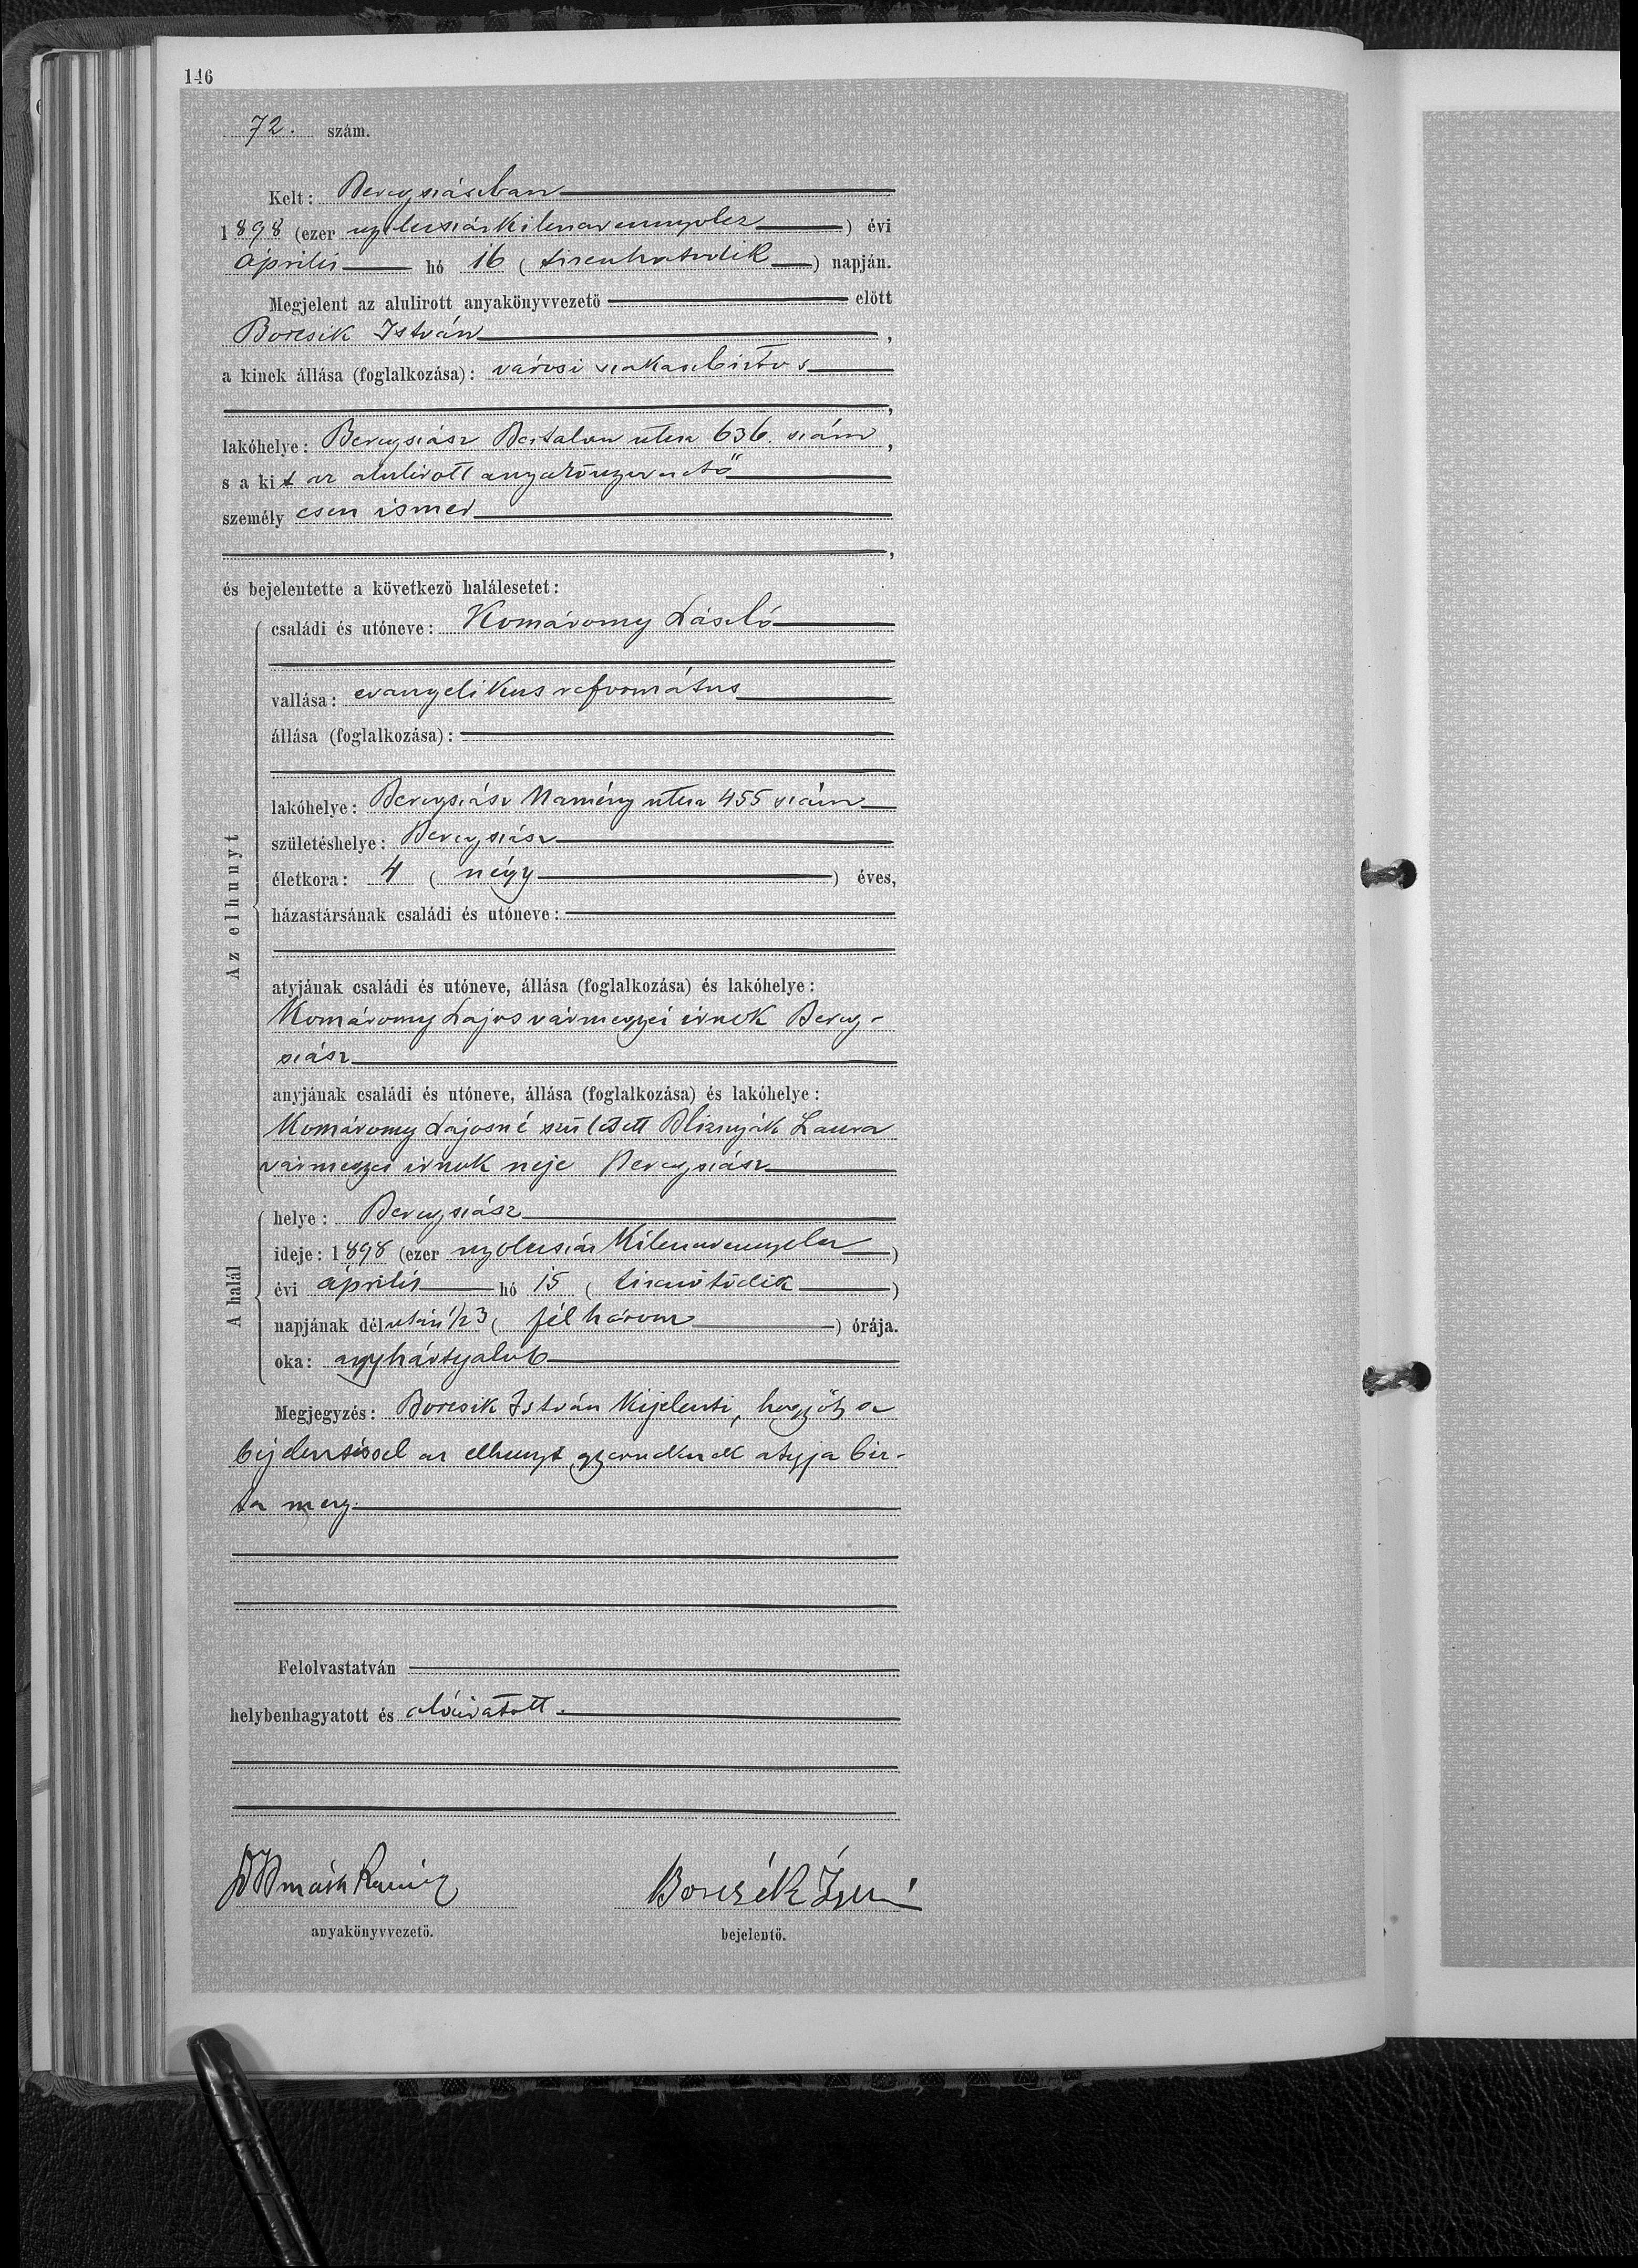 146
72. szám.
Kelt: Beregszászban
1898 (ezer nyolcszázkilencvennyolcz) évi
április hó 16 (tizenhatodik) napján.
Megjelent az alulirott anyakönyvvezető előtt
Borcsik István,
a kinek állása (foglalkozása): városi szakaszbiztos
,
lakóhelye: Beregszász Bertalan utca 636. szám,
s a kit az alulirott anyakönyvvezető
személyesen ismer
,
és bejelentette a következő halálesetet:
Az elhunyt
családi és utóneve: Komáromy László
vallása: evangelikus református
állása (foglalkozása):
lakóhelye: Beregszász Namény utca 455 szám
születéshelye: Beregszász
életkora: 4 (négy) éves,
házastársának családi és utóneve:
atyjának családi és utóneve, állása (foglalkozása) és lakóhelye:
Komáromy Lajos vármegyei irnok Bereg-
szász
anyjának családi és utóneve, állása (foglalkozása) és lakóhelye:
Komáromy Lajosné született Laura
vármegyei irnok neje Beregszász
A halál
helye: Beregszász
ideje: 1898 (ezer nyolcszáz kilencvennyolcz)
évi április hó 15 (tizenötödik)
napjának délután 1/2 3 (fél három) órája.
oka: agyhártyalob
Megjegyzés: Borcsik István kijelenti, hogy őt a
bejelentéssel az elhunyt gyermeknek atyja biz-
ta meg.
Felolvastatván
helybenhagyatott és aláiratott.
anyakönyvvezető.
bejelentő.